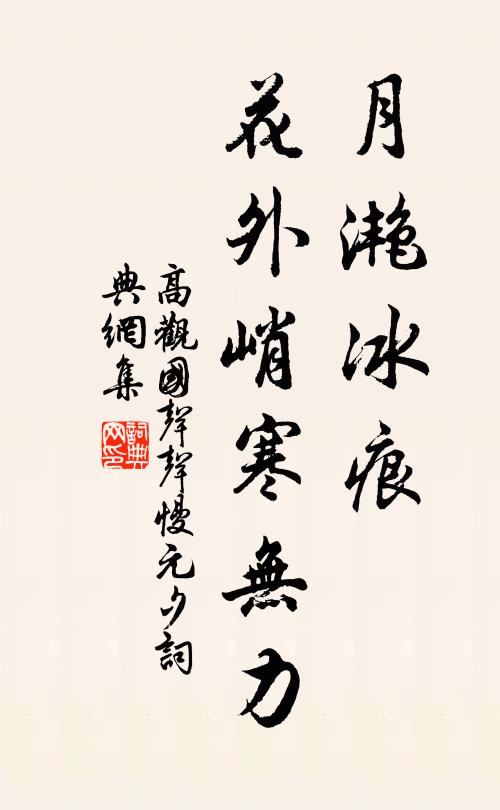 月滟冰痕
花外峭寒無力
高觀國聲聲慢元夕詞
典網集
詞典
网印